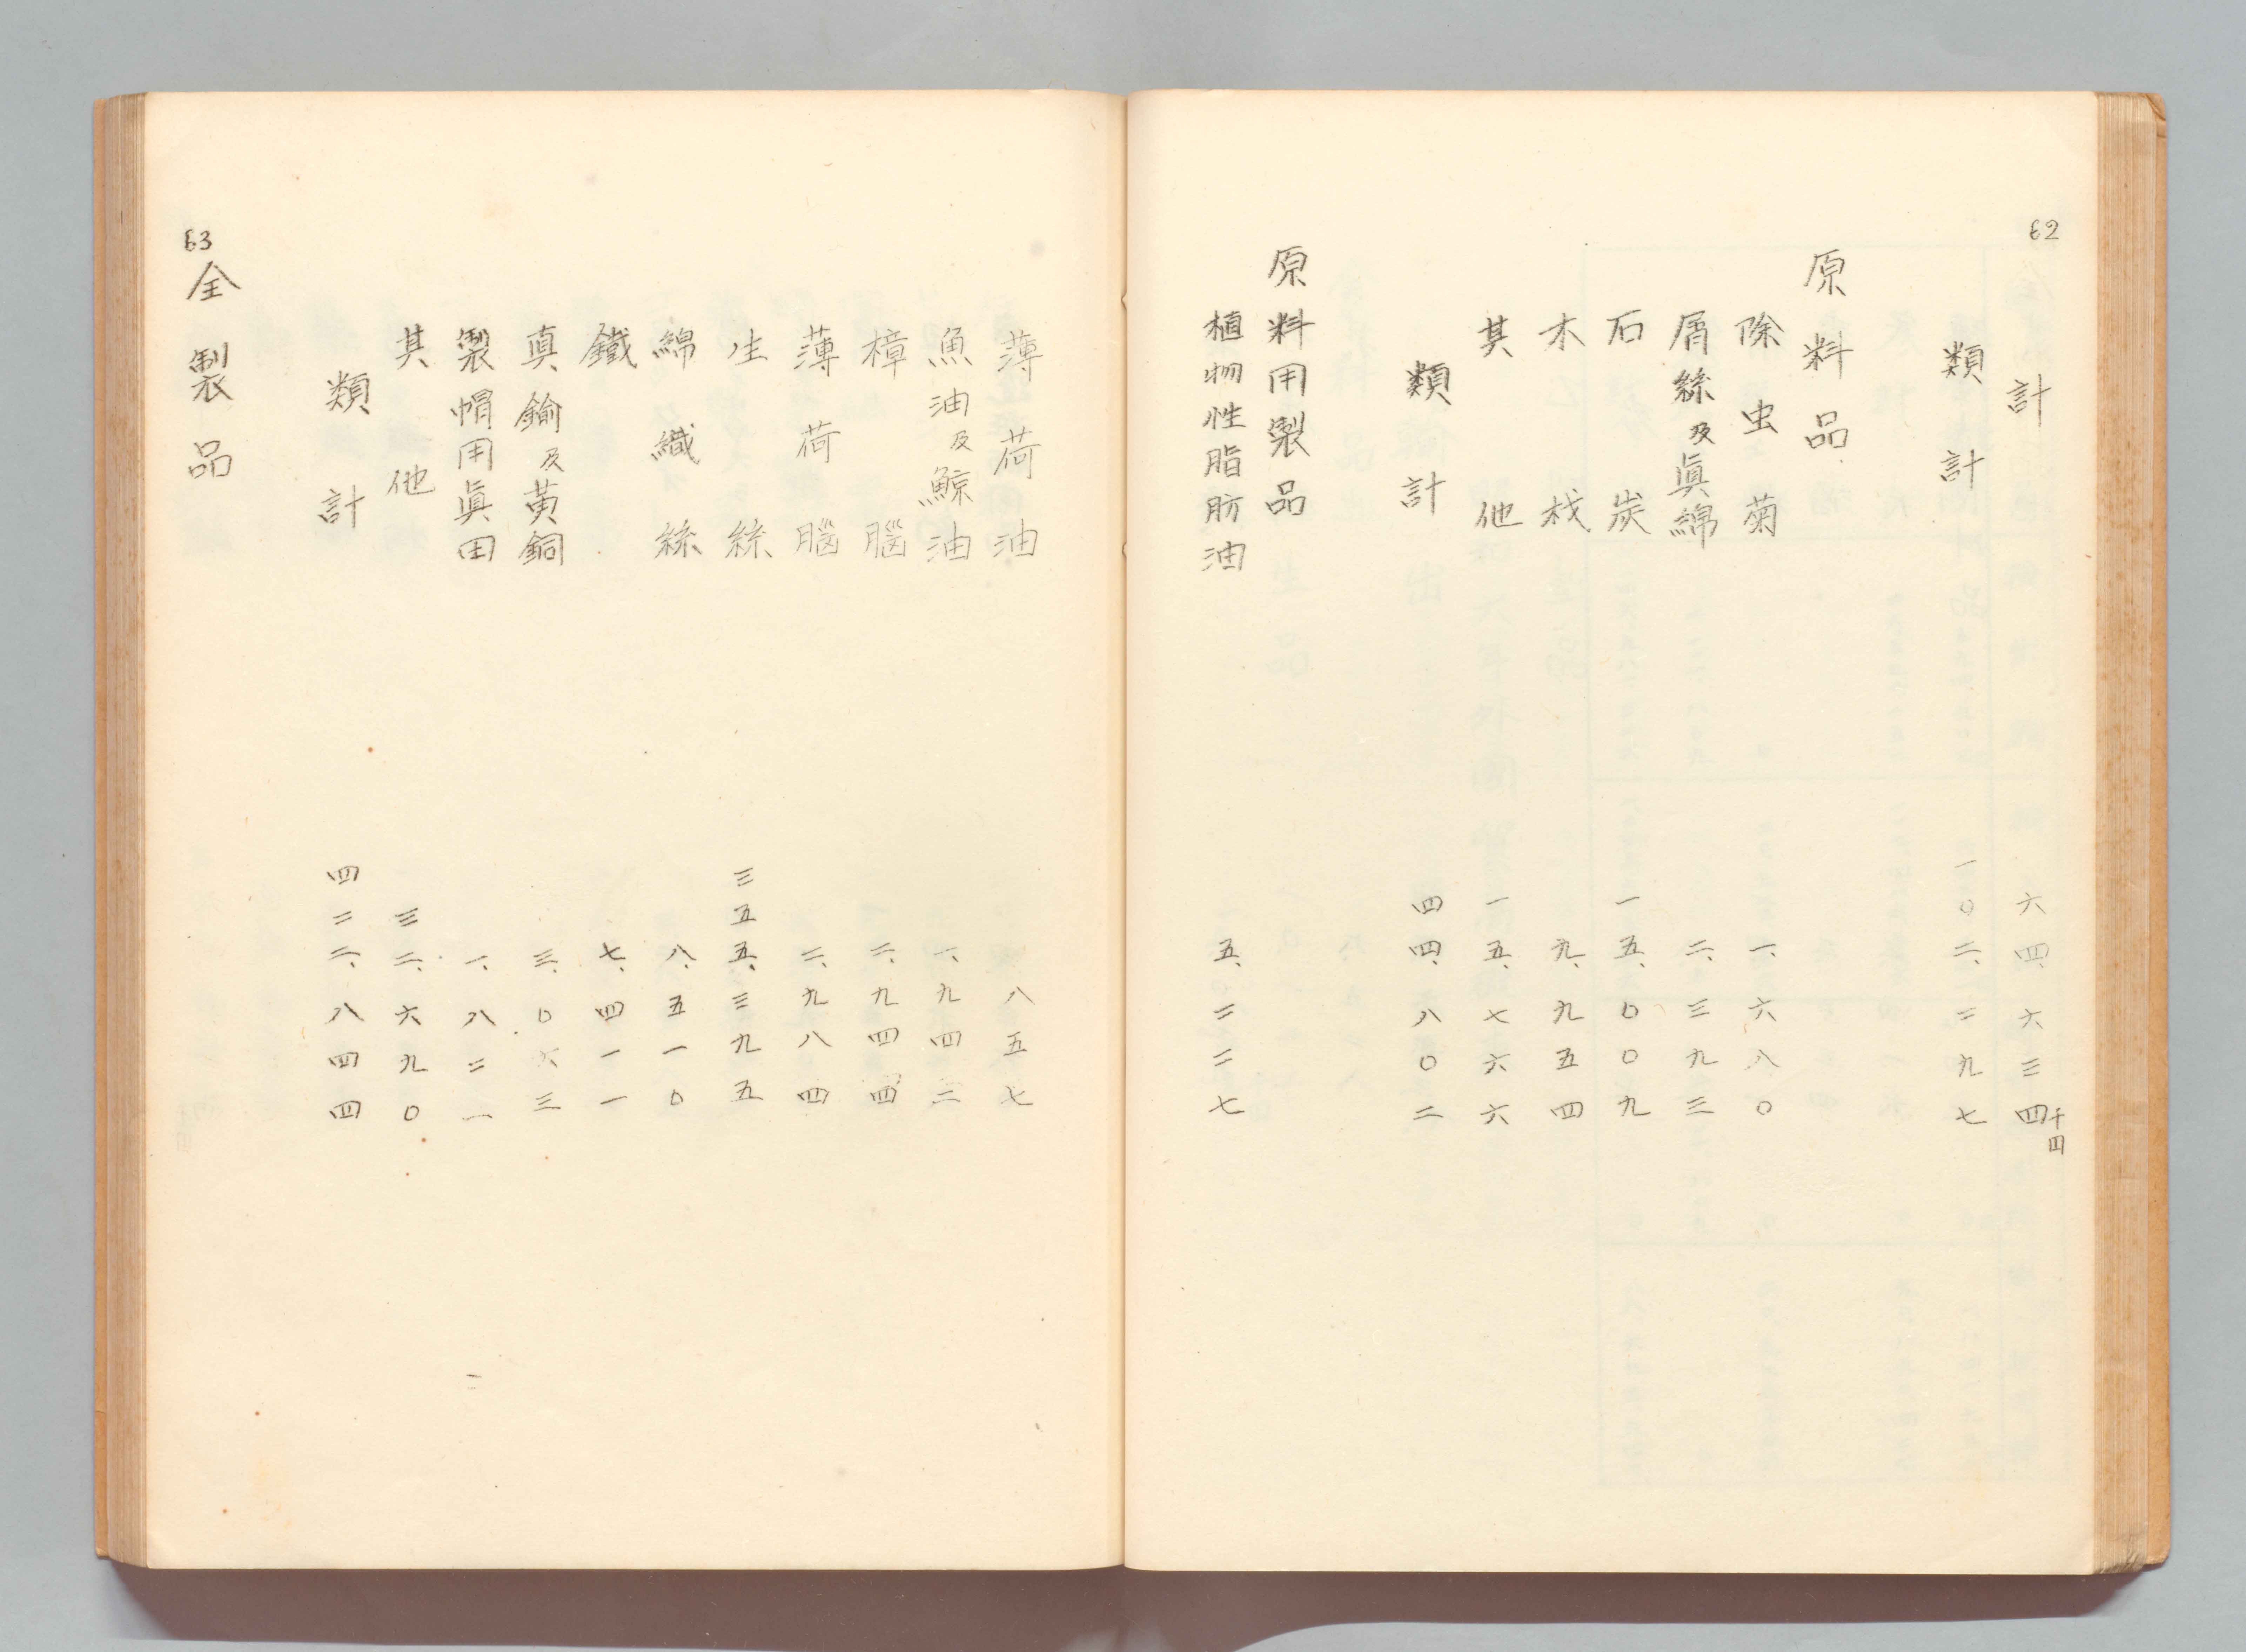 62
計 六四、六三四千円
類計 一〇二、二九七
原料品
除虫菊 一、六八〇
屑絲及眞綿 二、三九三
石炭 一五、〇〇九
木材 九、九五四
其他 一五、七六六
類計 四四、八〇二
原料用製品
植物性脂肪油 五、二二七
薄荷油 八五七
魚油及鯨油 一、九四三
樟腦 二、九四四
薄荷腦 二、九八四
生絲 三五五、三九五
綿織絲 八、五一〇
鐵 七、四一一
真鍮及黄銅 三、〇六三
製帽用真田 一、八二一
其他 三二、六九〇
類計 四二二、八四四
63
全製品